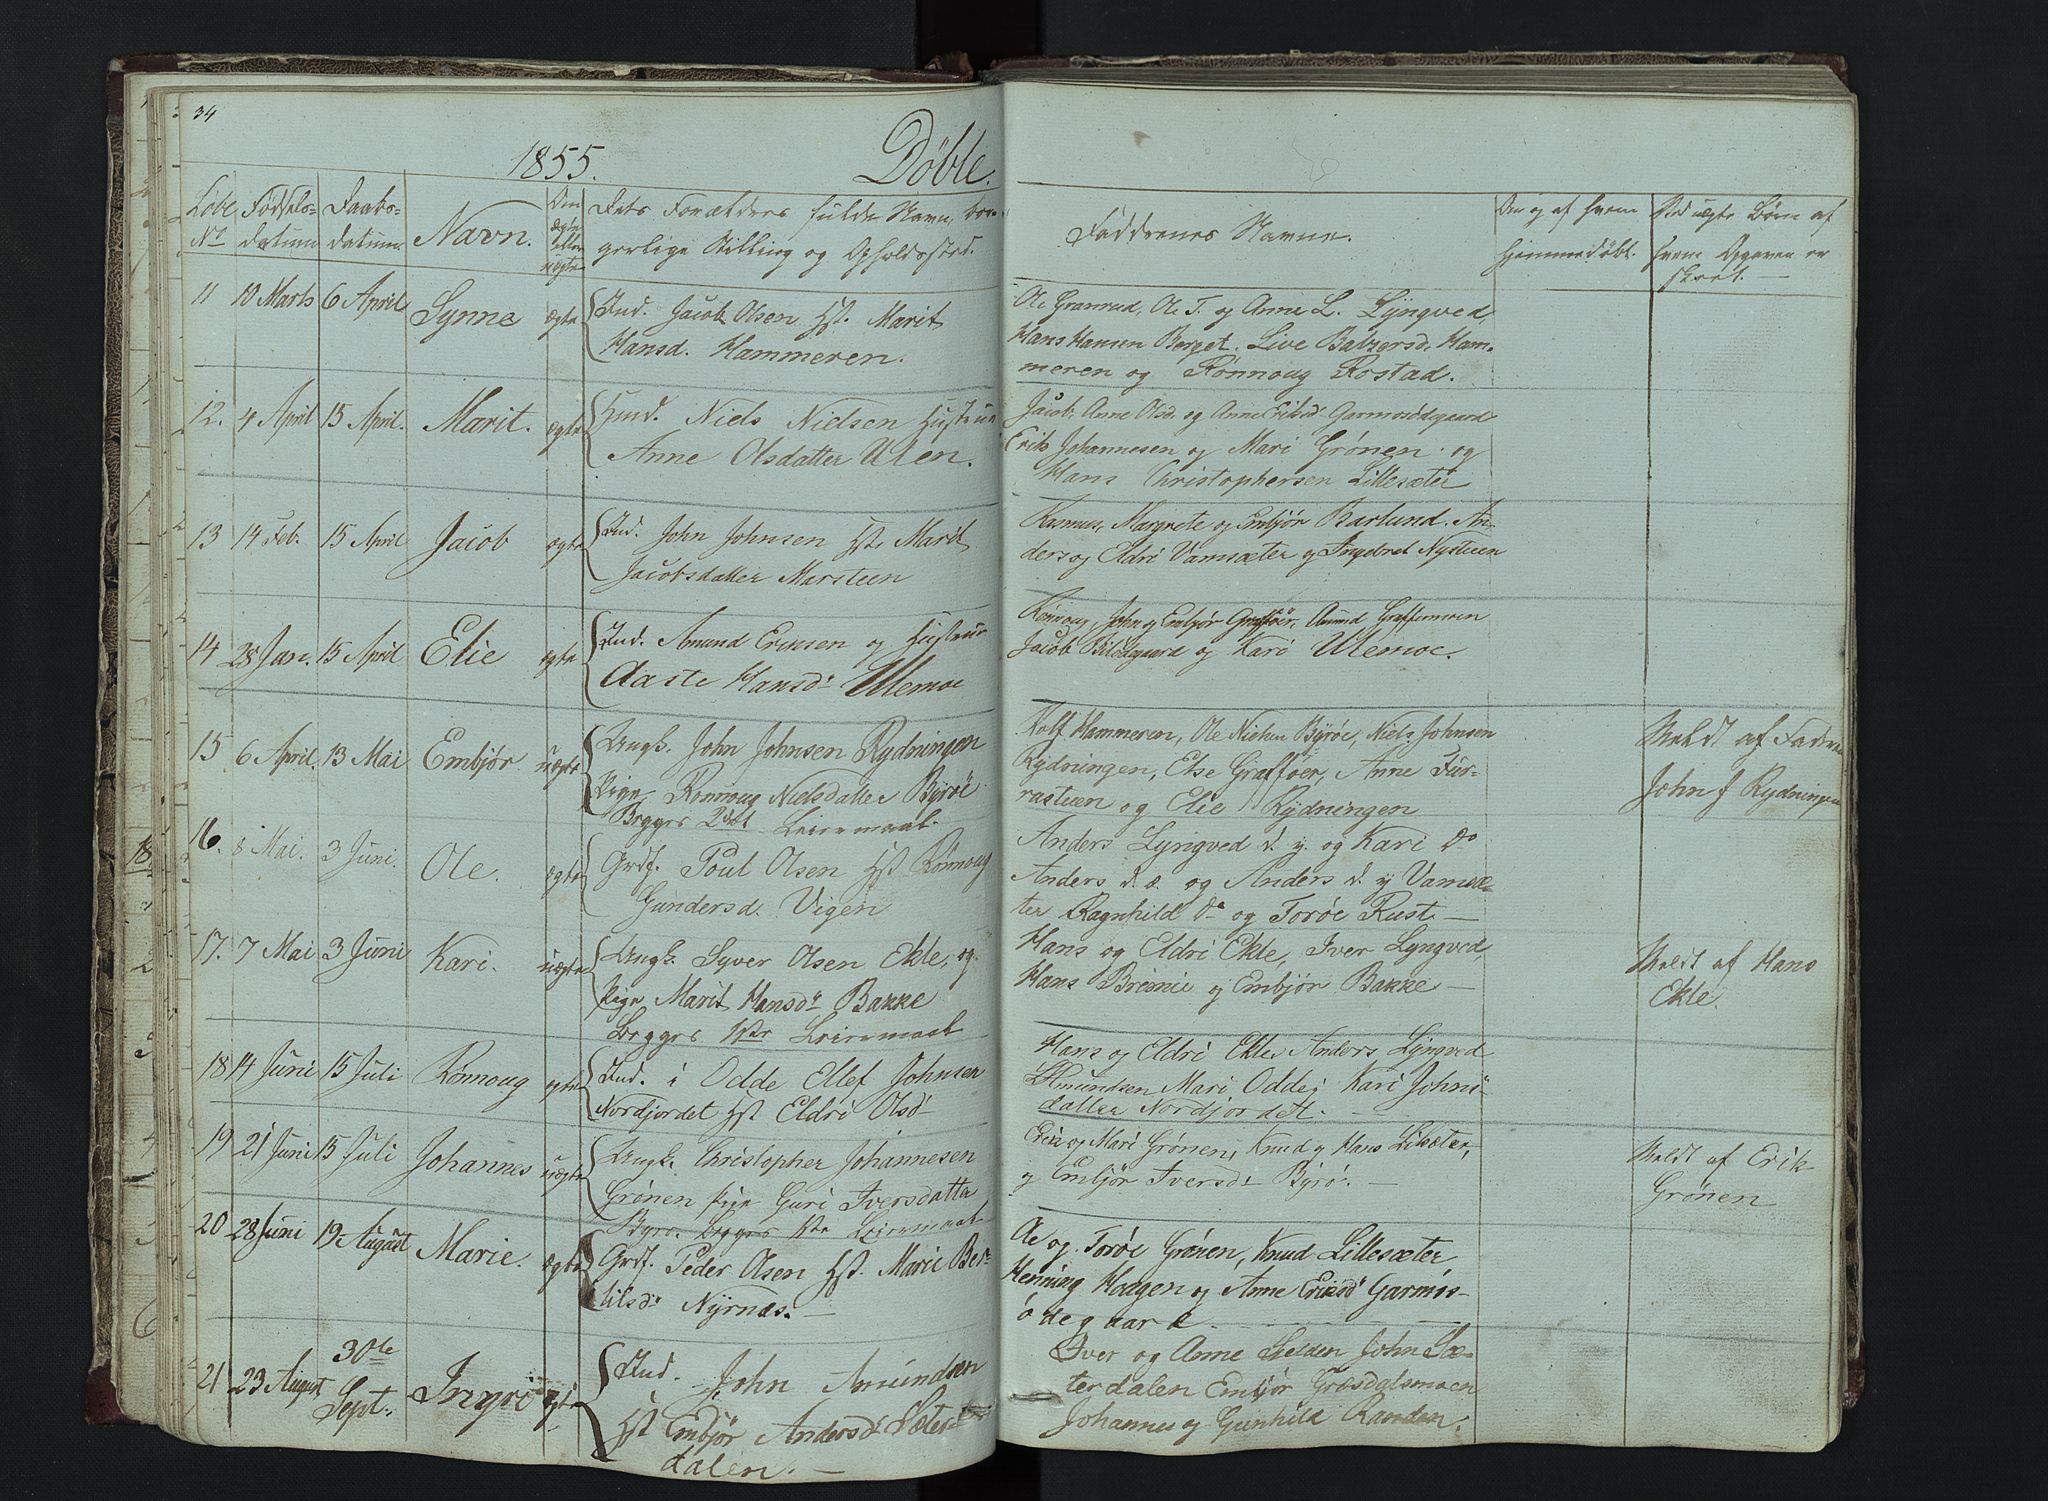 34
1855.
Døbte.
Løbe No
Fødsels-datum
Daabs-datum
Navn.
Om ægte eller uægte
Dets Forældres fulde Navn, bor-
gerlige Stilling og Opholdssted.
Faddrenes Navne.
Om og af hvem
hjemmedøbt.
Ved uægte Børn af
hvem Opgaven er
skeet.
11 10 Marts 6 April Synne ægte Ind. Jacob Olsen Hst. Marit
Hansd. Hammeren.
Ole Granrud, Ole T. og Anne L. Lyngved,
Hans Hansen Berget. Live Balzersd. Ham-
meren og Rønnoug Rostad.
12. 4 April 15 April. Marit. ægte Huusmd. Niels Nielsen Hustrue
Anne Olsdatter Ulen.
Jacob, Anne Olsd. og Anne Eriksd Garmosødegaard
Erik Johannesen og Mari Grønen og
Hans Christophersen Lillesæter
13 14 Feb. 15 April Jacob ægte Ind. John Johnsen Hst. Marit
Jacobsdatter Marsteen
Rasmus, Margrete og Embjør Barlund. An-
ders og Eldri Vamsæter og Ingebret Nysteen
14 28 Jan. 15 April Elie ægte Ind. Amund Eriksen og Hustrue
Aaste Hansd. Ulemoe
Rønnoug, John og Embjør Graffer, Amund Graffermoen
Jacob og Kari Ulemoe.
15 6 April. 13 Mai Embjør uægte Ungk. John Johnsen Rydningen
Pige Rønnoug Nielsdatter Byrøe
Begges 2det Leiermaal.
Rolf Hammeren, Ole Nielsen Byrøe, Niels Johnsen
Rydningen, Else Graffer, Anne Fur-
rusteen og Elie Rydningen
Meldt af Fadren
John J Rydningen
16. 8 Mai. 3 Juni. Ole. ægte Grdf. Poul Olsen Hst Rønnoug
Gundersd. Vigen
Anders Lyngved d. y. og Kari do
Anders d. æ. og Anders d. y Vamsæ-
ter Ragnhild do og Torøe Rust
17. 7 Mai 3 Juni Kari. uægte Ungk. Syver Olsen Ekle, og
Pige Marit Hansd. Bakke
Begges 1ste Leiermaal
Hans og Eldri Ekle, Iver Lyngved,
Hans og Embjør Bakke
Meldt af Hans
Ekle.
18 14 Juni 15 Juli Rønnoug ægte Ind. i Odde Ellef Johnsen
Nordjordet Hst Eldri Olsd
Hans og Eldri Ekle Anders Lyngved
Knundsen Mari Odde, Kari Johns-
datter Nordjordet.
19 21 Juni 15 Juli Johannes uægte Ungk. Christopher Johannesen
Grønen Pige Guri Iversdatter
Byrø. begges 1ste Leiermaal
Erik og Mari Grønen, Knud og Hans Lilsæter,
og Embjør Iversd. Byrø.
Meldt af Erik
Grønen
20 28 Juni 19 August Marie. ægte Grdf. Peder Olsen Hst. Marie Ber-
tilsd. Nyrnæs.
Ole og Torøe Grønen, Knud Lillesæter
Henning Haagen og Anne Eriksd Garmos-
ødegaard
21 23 August 30te Sept. Ingri ægte Ind. John Amundsen
Hst Embjør Andersd. Sæter
dalen.
Iver og Anne Sielden John Sæ-
terdalen Embjør Græsdalsmoen
Johannes og Gunhild Randen.